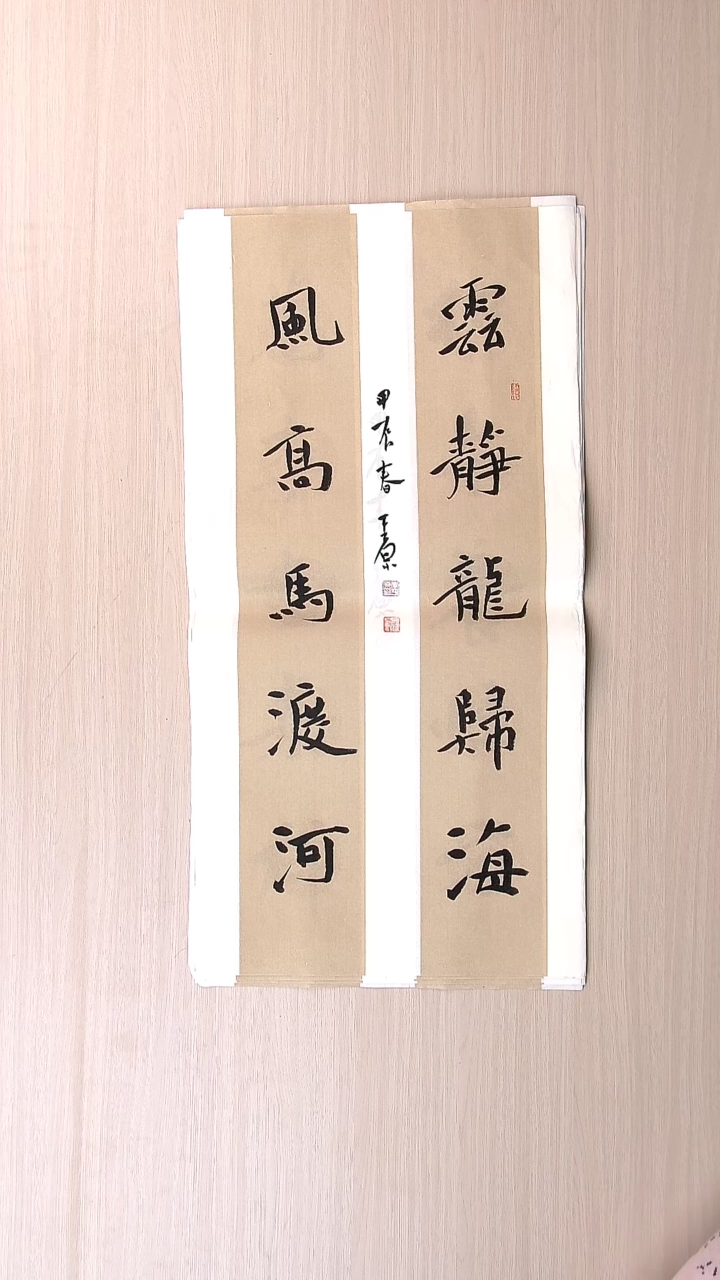 雲靜龍歸海
風高馬渡河
甲辰春